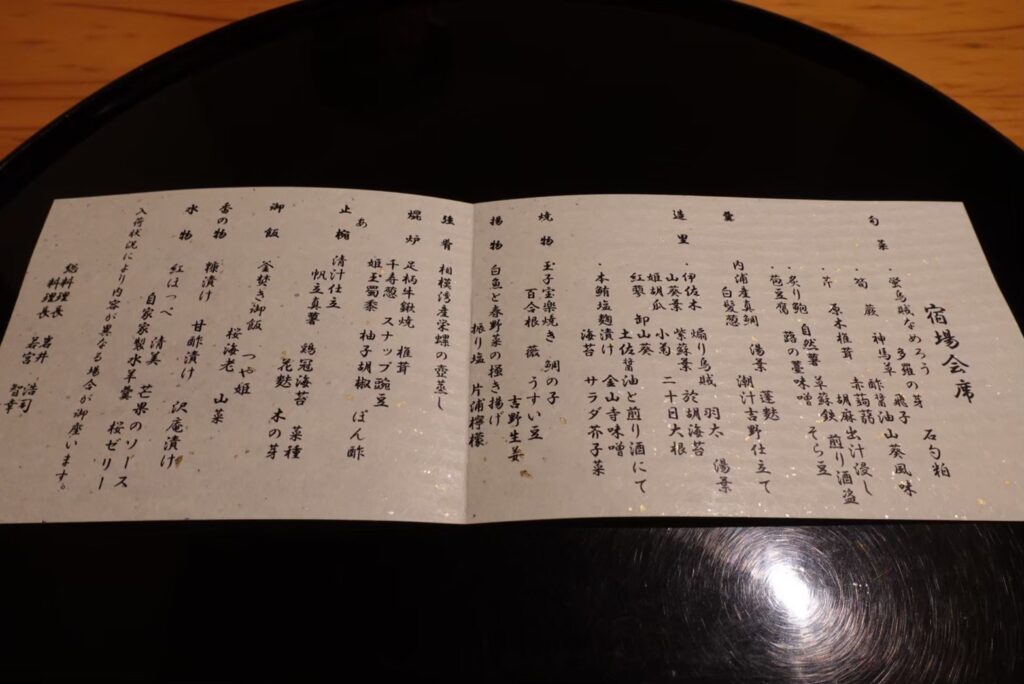 宿場会席
旬菜
・蛍烏賊なめろう 多羅の芽 石勺粕
・筍 蕨 神馬草 飛子 酢醤油 山葵風味
・芹 原木椎茸 赤蒟蒻 胡麻出汁浸し
・炙り鮑 自然薯 草蘇鉄 煎り酒盗
・苞豆腐 蕗の薹味噌 そら豆
内浦産真鯛 湯葉 蓬麩
白髪葱 潮汁吉野仕立て
造里
・伊佐木 煽り烏賊 羽太 湯葉
山葵葉 紫蘇葉 於胡海苔
姫胡瓜 小菊 二十日大根
紅蓼 卸山葵
土佐醤油と煎り酒にて
・本鮪塩麹漬け 金山寺味噌
海苔 サラダ芥子菜
焼物 玉子宝楽焼き 鯛の子
百合根 薇 うすい豆
揚物 白魚と春野菜の掻き揚げ 吉野生姜
振り塩 片浦檸檬
強肴 相模湾産栄螺の壺蒸し
焜炉 足柄牛鍬焼 椎茸
千寿葱 スナップ豌豆
姫玉蜀黍 柚子胡椒 ぽん酢
止椀 清汁仕立
帆立真薯 鶏冠海苔 菜種
花麩 木の芽
御飯 釜焚き御飯 つや姫
桜海老 山菜
香の物 糠漬け 甘酢漬け 沢庵漬け
水物 紅ほっぺ 清美 芒果のソース
自家製水羊羹 桜ゼリー
入荷状況により内容が異なる場合が御座います。
総料理長 岩井 浩司
料理長 若宮 智幸